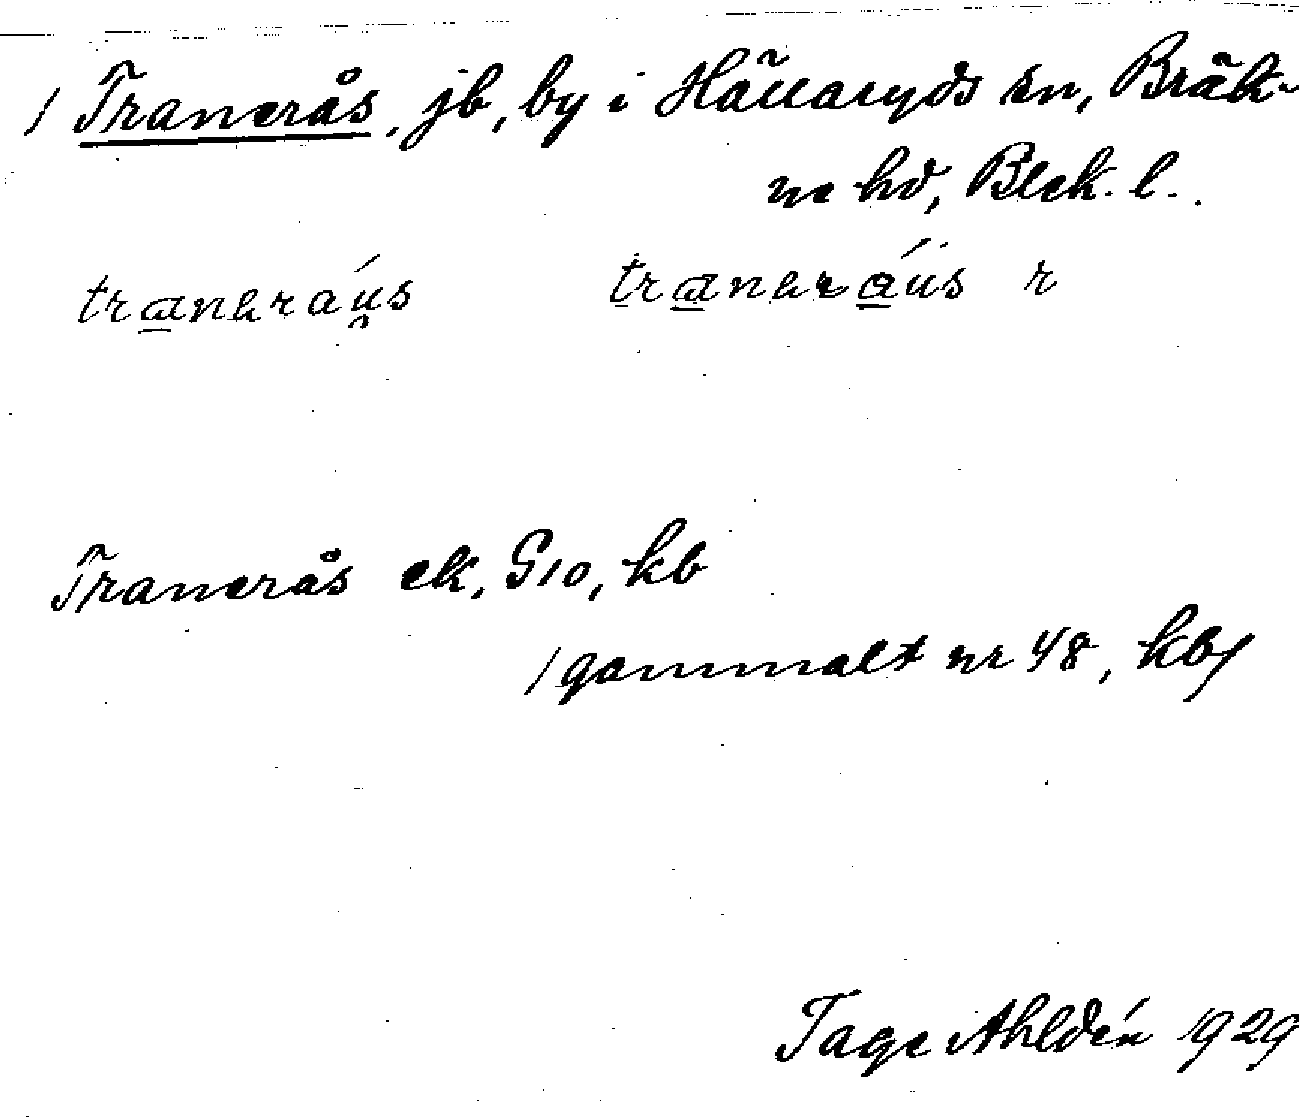 / Tranerås, jb, by i Hällaryds sn, Bräk-
ne hd, Blek. l.
traneráus traneráus r
Tranerås ek, G10, kb
/gammalt nr 48, kb/
Tage Ahldén 1929